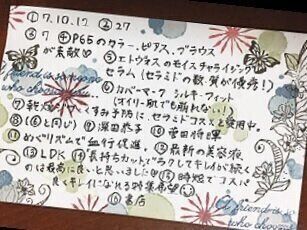 ①7.10.12 ②27
③7 ④P65のカラー、ピアス、ブラウス
が素敵♡ ⑤エトヴォスのモイスチャライジング
セラム(セラミドの数、質が優秀!)
⑥カバーマーク シルキーフィット
(オイリー肌でも崩れない♪)
⑦乾燥、くすみ予防に、セラミドコスメを使用中。
⑧(⑥と同じ) ⑨深田恭子 ⑩菅田将暉
⑪めぐりズムで血行促進 ⑫最新の美容液
⑬LDK ⑭「長持ちカットでラクしてキレイが続く」
のは最高に良いと思いました ⑮時短でコスパ
良くキレイになれる特集希望
⑯書店
A friend is someone
who chooses
A friend is so
who chooses